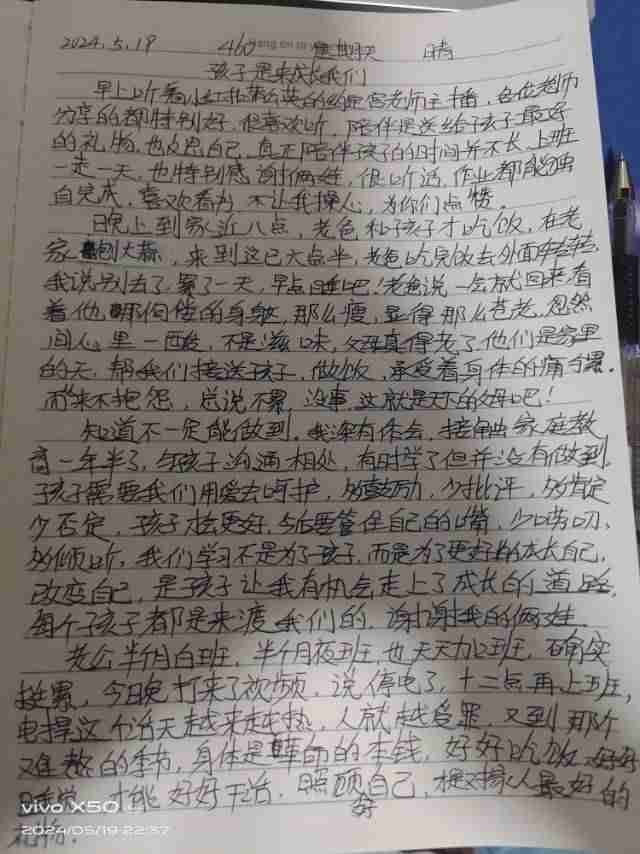 2024.5.19 460 星期天 晴
孩子是来成长我们
早上听着小红花蒲公英的约定宫老师主播,各位老师
分享的都特别好,很喜欢听,陪伴是送给孩子最好
的礼物,也反思自己,真正陪伴孩子的时间并不长,上班
一走一天,也特别感谢俩娃,很听话,作业都能独
自完成,喜欢看书,不让我操心,为你们点赞。
晚上到家近八点,老爸和孩子才吃饭,在老
家刨大蒜,来到这已七点半,老爸吃完饭去外面转转去,
我说别去了,累了一天,早点睡吧!老爸说一会就回来,看
着他那佝偻的身躯,那么瘦,显得那么苍老,忽然
间心里一酸,不是滋味,父母真得老了,他们是家里
的天,帮我们接送孩子,做饭,承受着身体的痛与累。
而从来不抱怨,总说不累,没事,这就是天下的父母吧!
知道不一定能做到,我深有体会,接触家庭教
育一年半了,与孩子沟通相处,有时学了但并没有做到,
孩子需要我们用爱去呵护,多鼓励,少批评,多肯定
少否定,孩子会更好,与后要管住自己的嘴,少唠叨,
多倾听,我们学习不是为了孩子,而是为了更好的成长自己,
改变自己,是孩子让我有机会走上了成长的道路,
每个孩子都是来渡我们的,谢谢我的俩娃
老公半个月白班,半个月夜班,也天天加班,确实
挺累,今晚打来了视频,说停电了,十二点再上班,
电焊这个活天越来越热,人就越受罪,又到那个
难熬的季节,身体是革命的本钱,好好吃饭,好好
睡觉,才能好好干活,照顾自己,是对家人最好的
vivo X50
2024/05/19 22:37